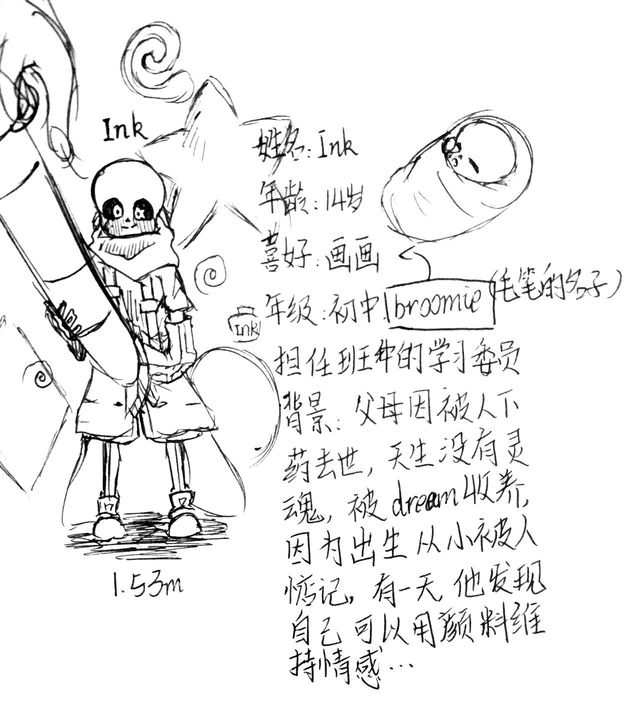 Ink
姓名:Ink
年龄:14岁
喜好:画画
年级:初中 broomie(毛笔的名子)
Ink
担任班年的学习委员
背景:父母因被人下
药去世,天生没有灵
魂,被dream收养,
因为出生从小被人
惦记,有一天,他发现
自己可以用颜料维
持情感…
1.53m